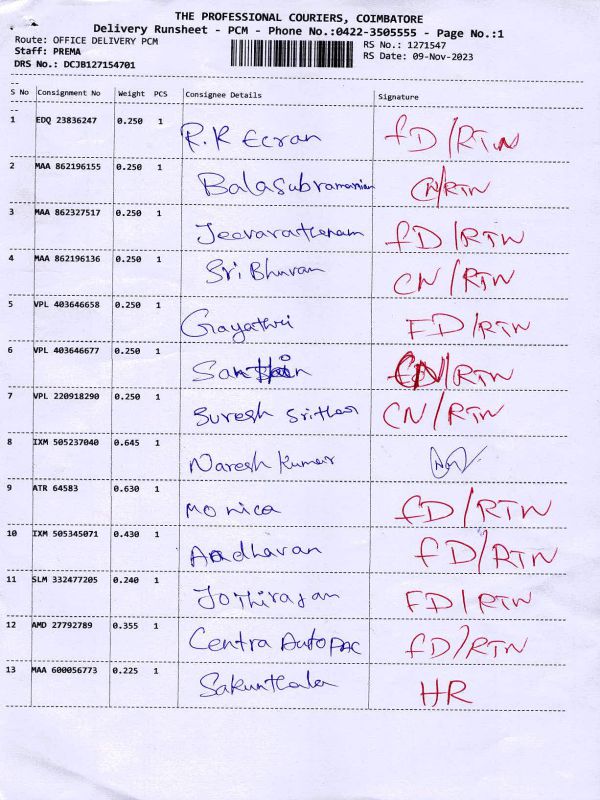 THE PROFESSIONAL COURIERS, COIMBATORE
Delivery Runsheet - PCM - Phone No.:0422-3505555 - Page No.:1
Route: OFFICE DELIVERY PCM RS No.: 1271547
Staff: PREMA RS Date: 09-Nov-2023
DRS No.: DCJB127154701
S No Consignment No Weight PCS Consignee Details Signature
1 EDQ 23836247 0.250 1 R.R Ecran FD/RTN
2 MAA 862196155 0.250 1 Balasubramanian CN/RTN
3 MAA 862327517 0.250 1 Jeevarathenam FD/RTN
4 MAA 862196136 0.250 1 Sri Bhuvan CN/RTN
5 VPL 403646658 0.250 1 Gayathri FD/RTN
6 VPL 403646677 0.250 1 CN/RTN
7 VPL 220918290 0.250 1 Suresh Srithar CN/RTN
8 IXM 505237040 0.645 1 Naresh Kumar
9 ATR 64583 0.630 1 Monica FD/RTN
10 IXM 505345071 0.430 1 Aadhavan FD/RTN
11 SLM 332477205 0.240 1 Jothirajan FD/RTN
12 AMD 27792789 0.355 1 Centra AutoPAC FD/RTN
13 MAA 600056773 0.225 1 Sakunthala HR